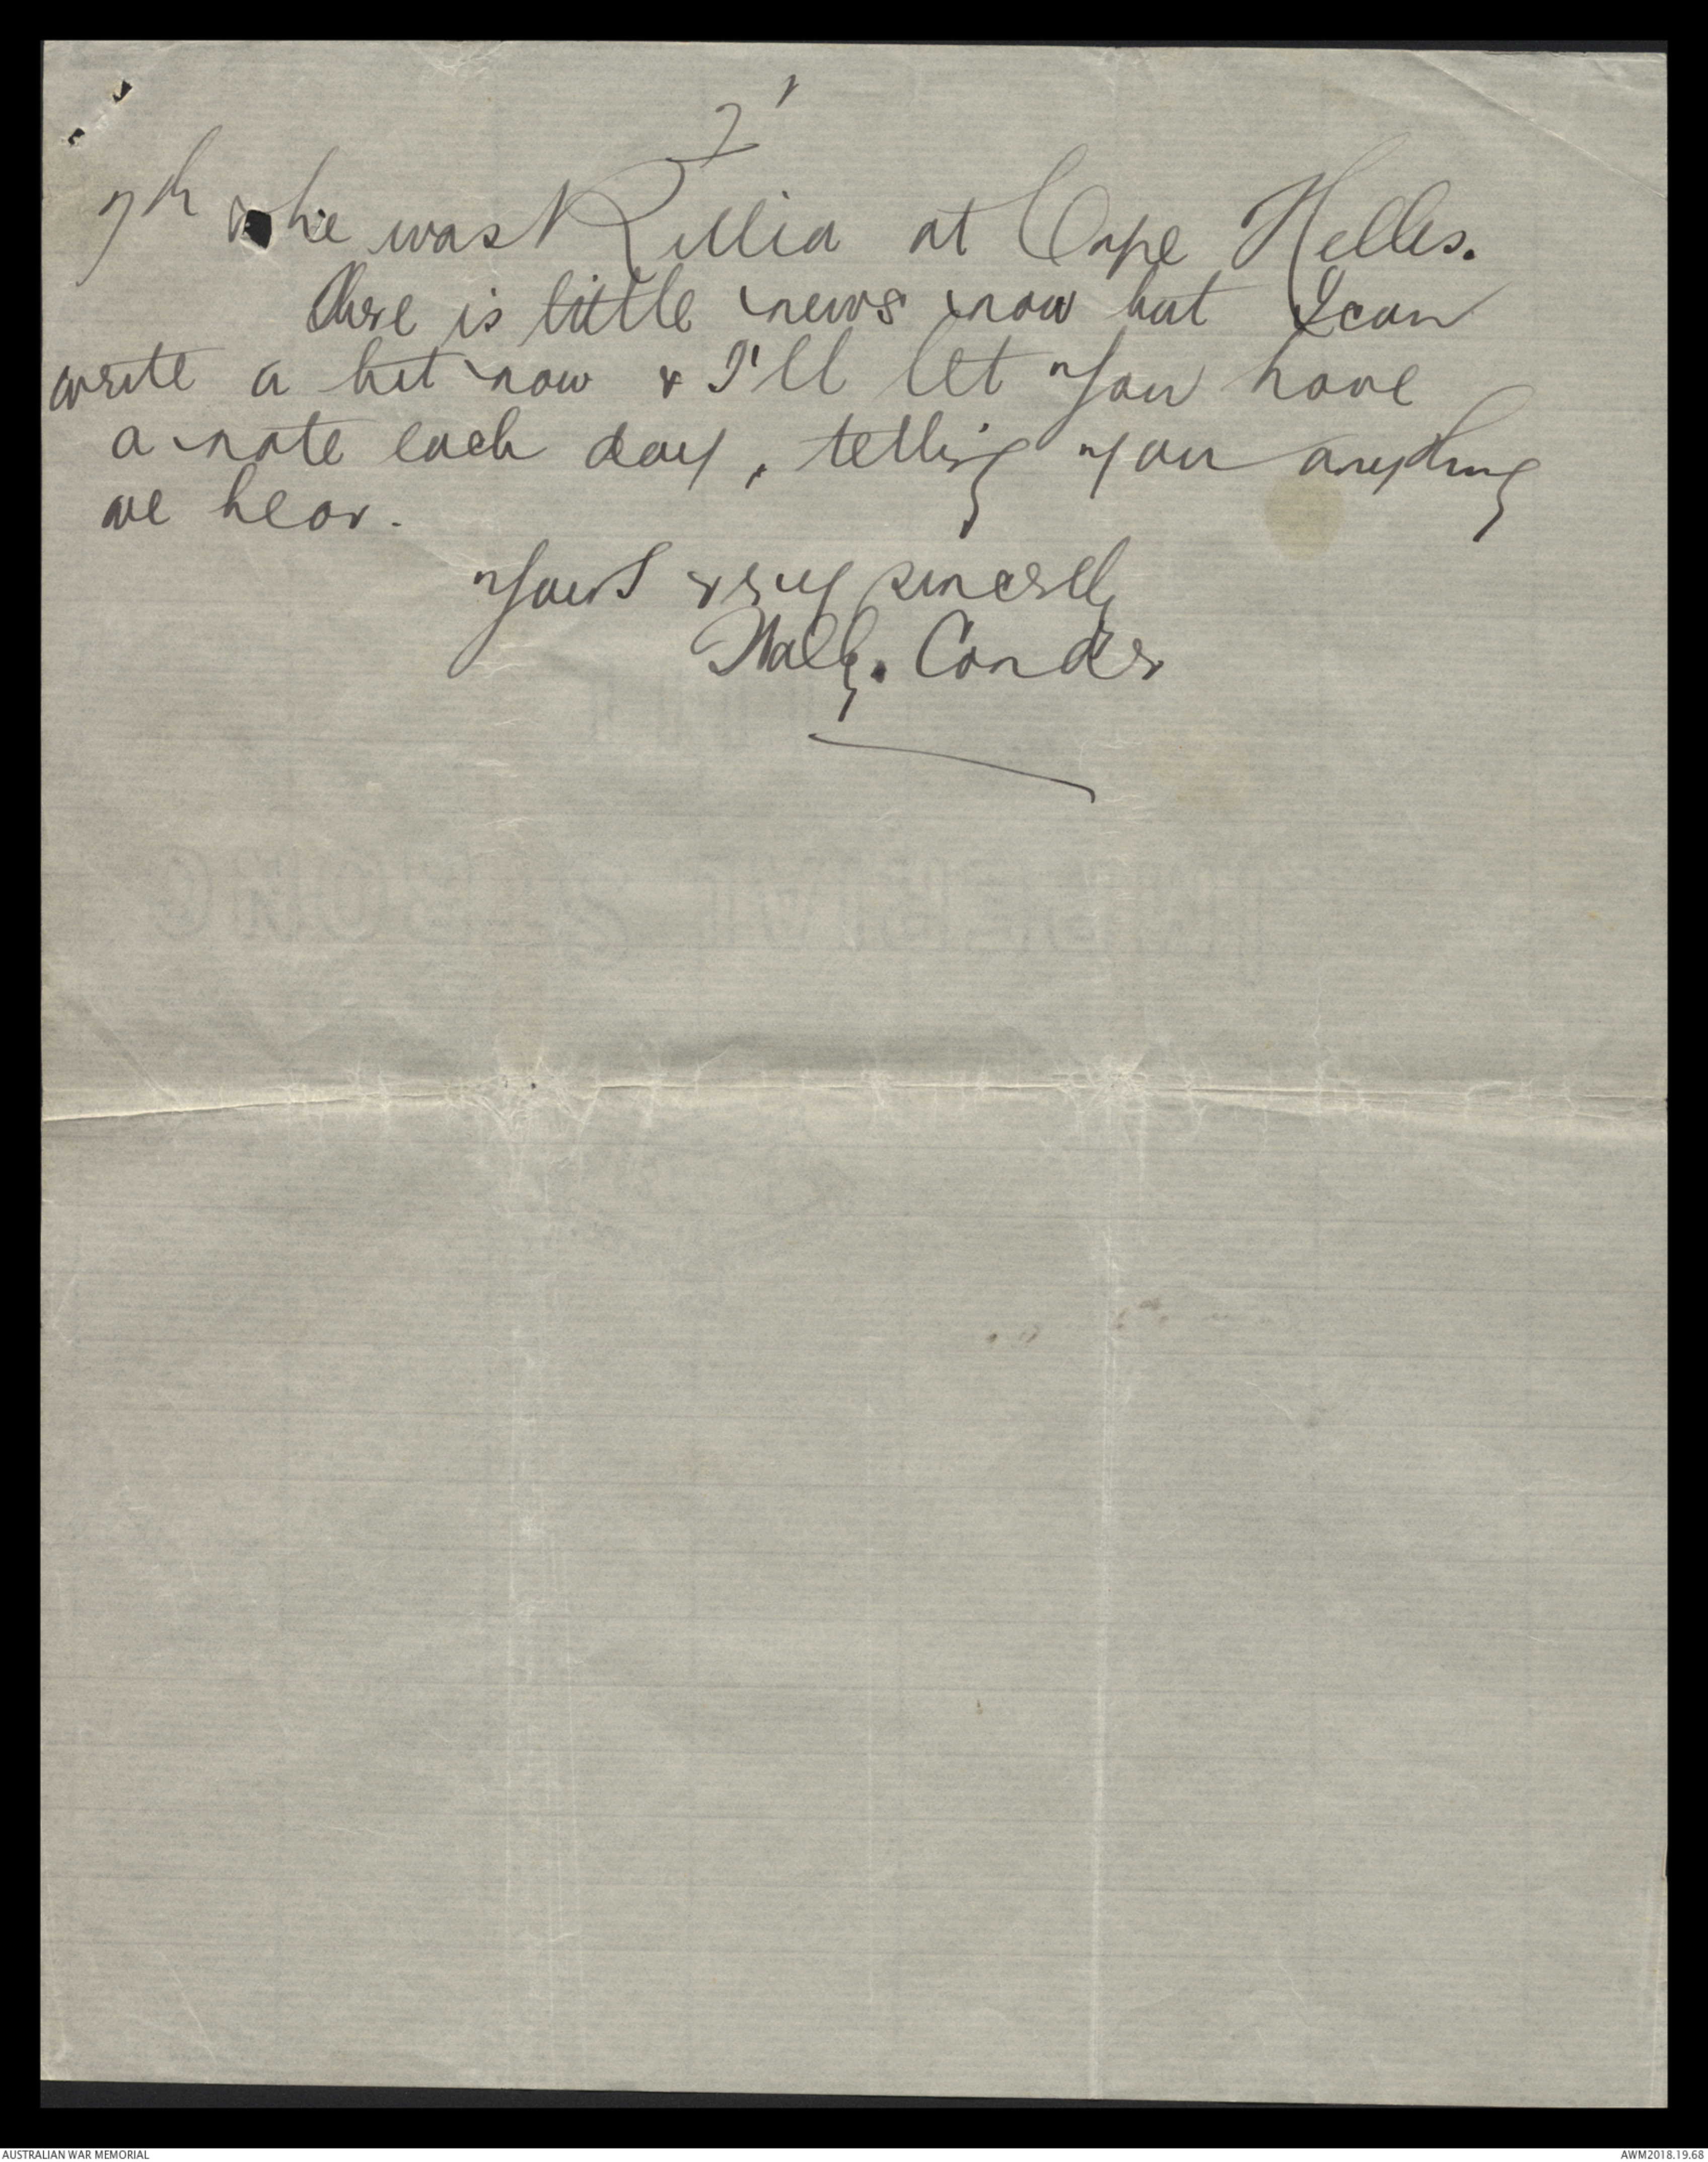 2
7th & he was Killed at Cape Helles.
There is little news now but I can
write a bit now & I'll let you have
a note each day, telling you anything
we hear.
Yours very sincerely
Wally. Conder
AUSTRALIAN WAR MEMORIAL
AWM2018.19.68